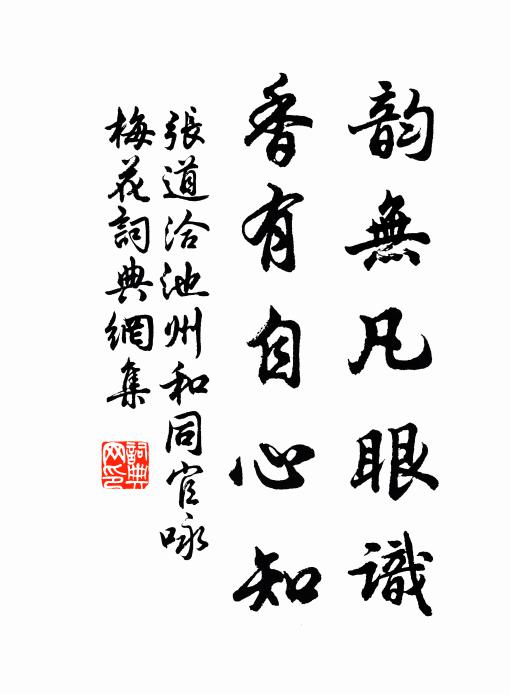 韵無凡眼識
香有自心知
張道洽池州和同官咏
梅花詞典網集
詞典网印